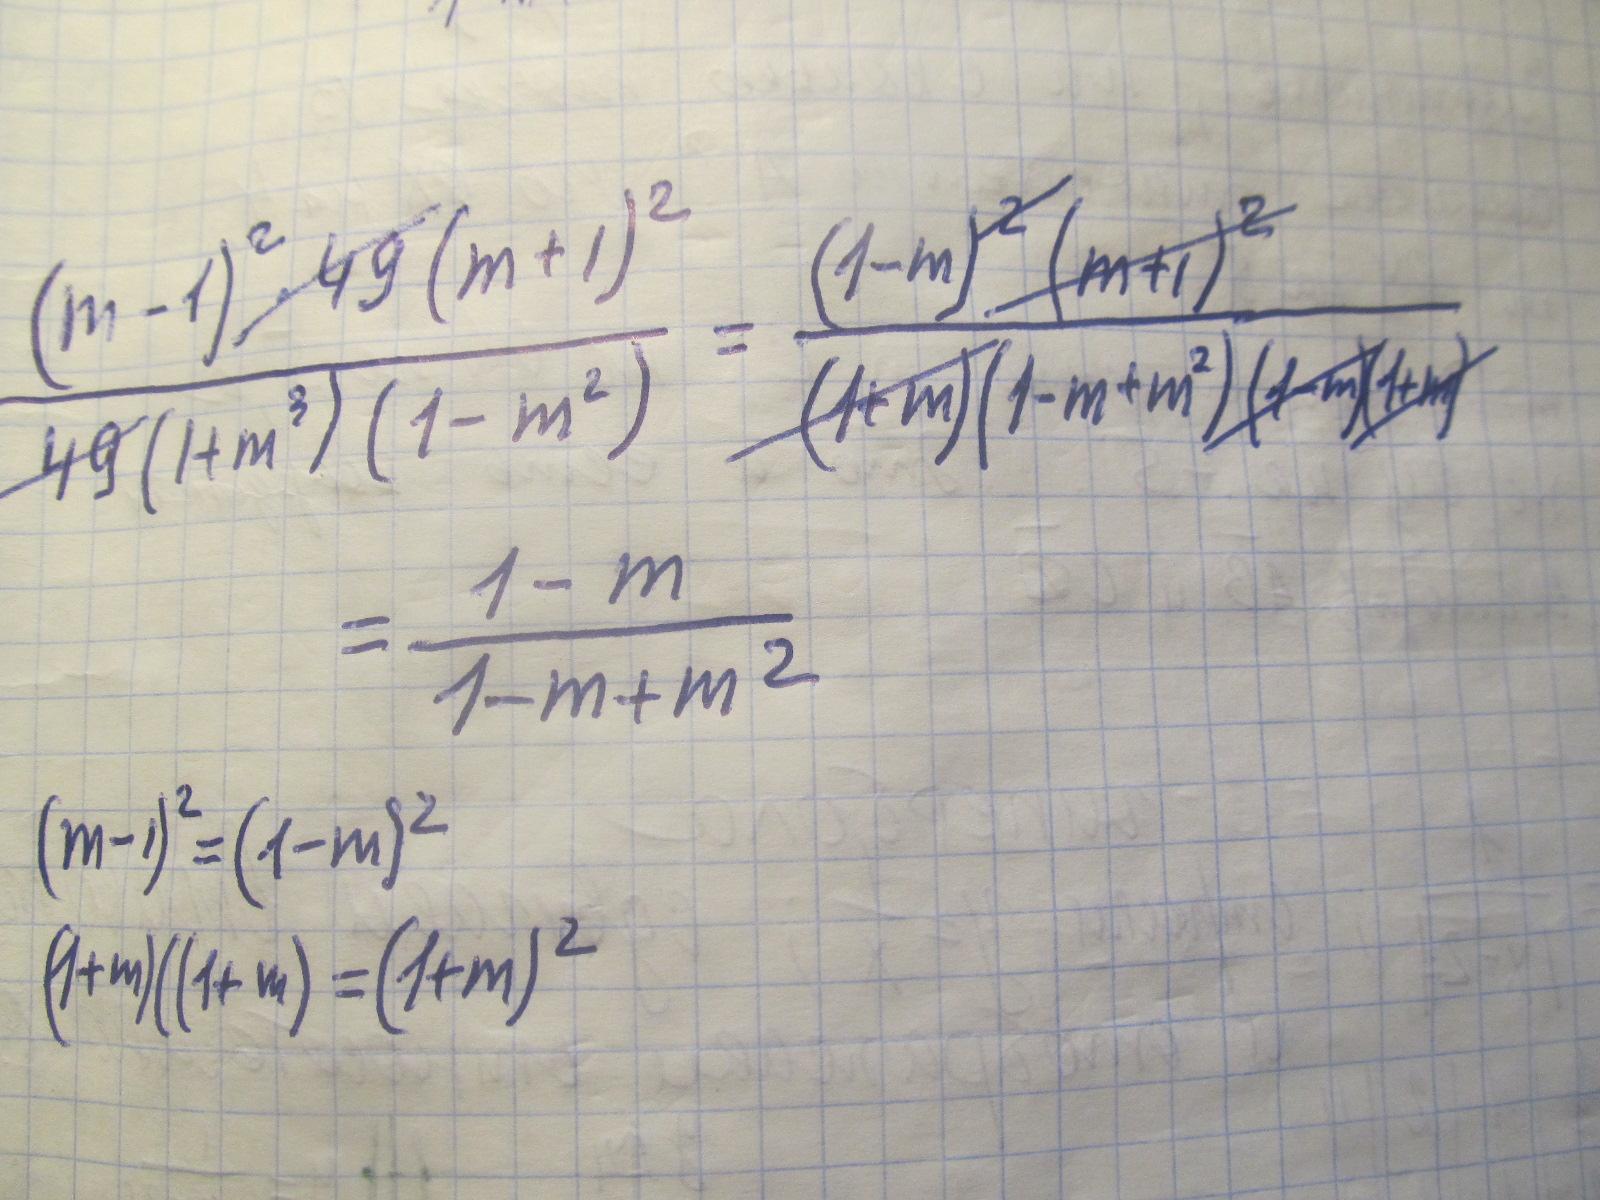 (m-1)² · 49(m+1)² / 49(1+m³)(1-m²) = (1-m)²(m+1)² / (1+m)(1-m+m²)(1-m)(1+m)
= 1-m / 1-m+m²
(m-1)²=(1-m)²
(1+m)((1+m) =(1+m)²